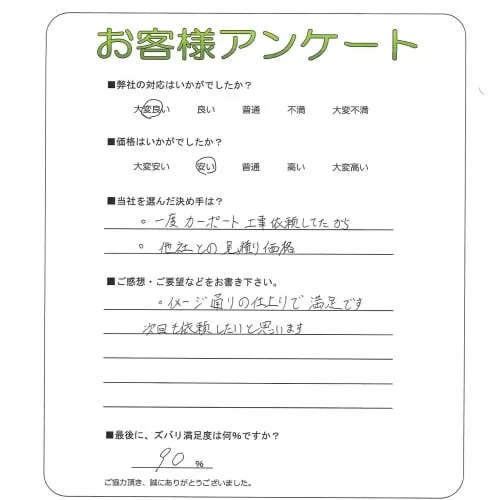 お客様アンケート
■弊社の対応はいかがでしたか?
大変良い 良い 普通 不満 大変不満
■価格はいかがでしたか?
大変安い 安い 普通 高い 大変高い
■当社を選んだ決め手は?
。一度カーポート工事依頼してたから
。他社との見積り価格
■ご感想・ご要望などをお書き下さい。
。イメージ通りの仕上りで満足です
次回も依頼したいと思います
■最後に、ズバリ満足度は何%ですか?
90 %
ご協力頂き、誠にありがとうございました。